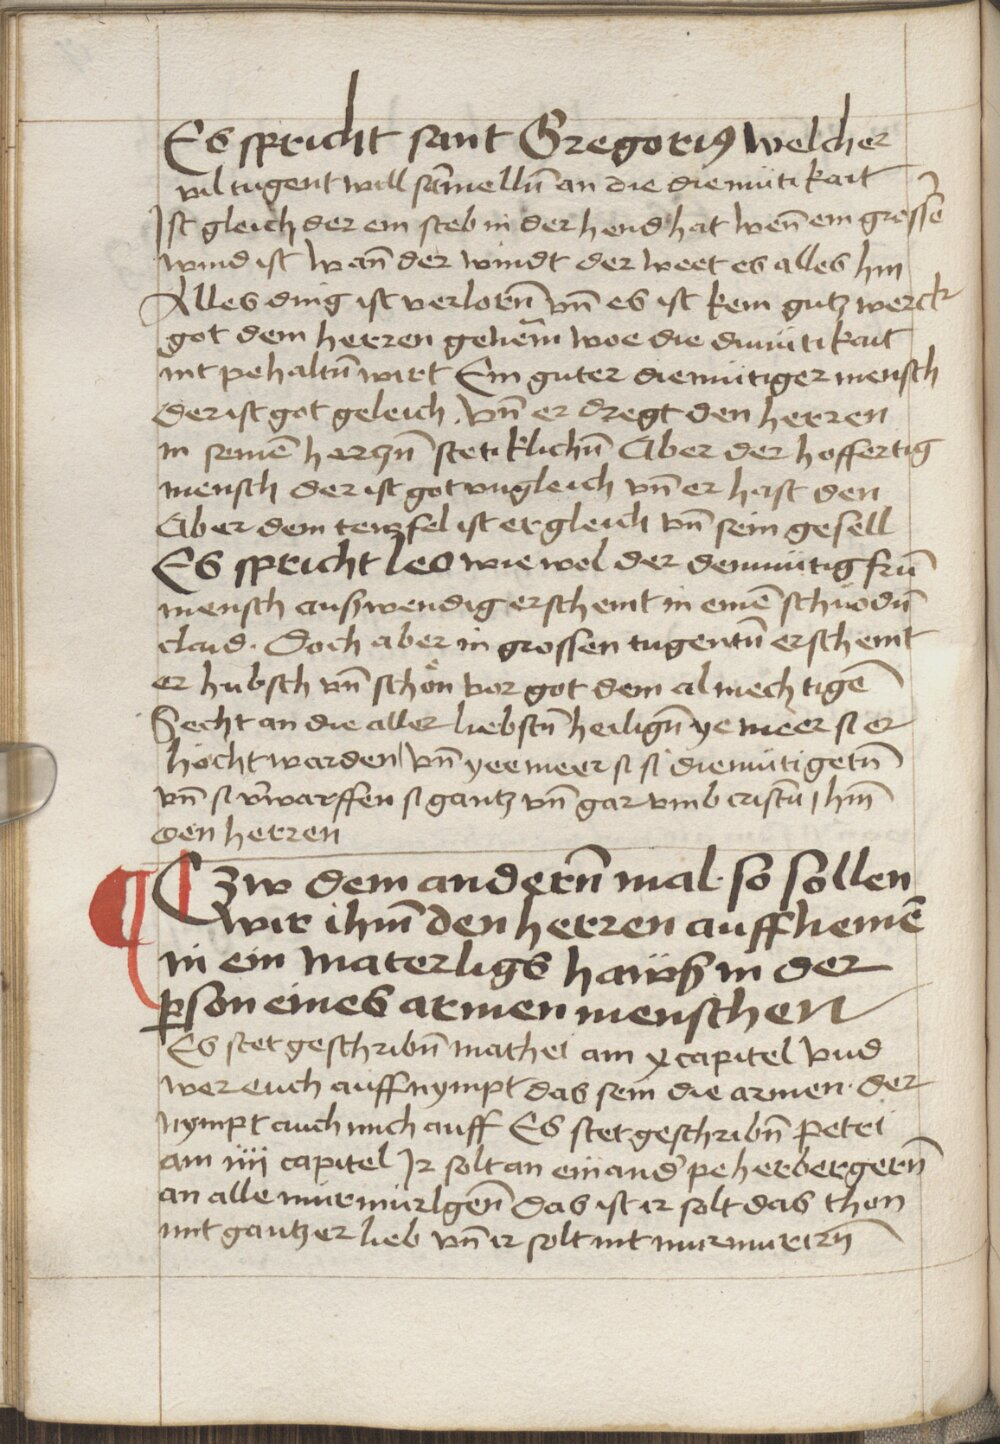 Es spricht sant Gregoriꝰ welcher
vil tugent will sam̄ellū an die diemuͤtikait
Ist gleich der ein steb in der hend hat wen̄ ein grosse
wind ist wan̄ der windt der weet es alles hin
Alles ding ist verlorn̄ vn̄ es ist kein gutz werck
got dem herren genem̄ woe die dimuͤtikait
nit pehaltū wirt Ein guter diemuͤtiger mensch
der ist got geleich. vn̄ er dregt den herren
in seinē hertzn̄ stetiklichū Aber der hoffertig
mensch der ist got vngleich vn̄ er hast den
Aber dem tewfel ist er gleich vn̄ sein gesell
Es spricht leo wie wol der demuͤtig frū
mensch auswendig erscheint in einē schnodū
claid. Doch aber in grossen tugentū erscheint
er hubsch vn̄ schoͤn vor got dem almechtigē
Secht an die aller liebstn̄ heilign̄ ye meer si er
hocht warden vn̄ yee meer si si diemuͤtigetn̄
vn̄ si v̄warffen si gantz vn̄ gar vmb cristū ihm̄
den herren
Czw dem andern̄ mal so sollen
wir ihm̄ den herren auffnemē
in ein materligs hawß in der
ꝑson eines armen menschen
Es stet geschribn̄ mathei am x capitel vnd
wer euch auffnympt das sein die armen. der
nympt auch mich auff Es stet geschribn̄ petri
am iiii capitel Ir solt an einand' peherbergern̄
an alle murmurlgen̄ das ist ir solt das thon
mit gantzer lieb vn̄ ir solt nit murmurirn̄